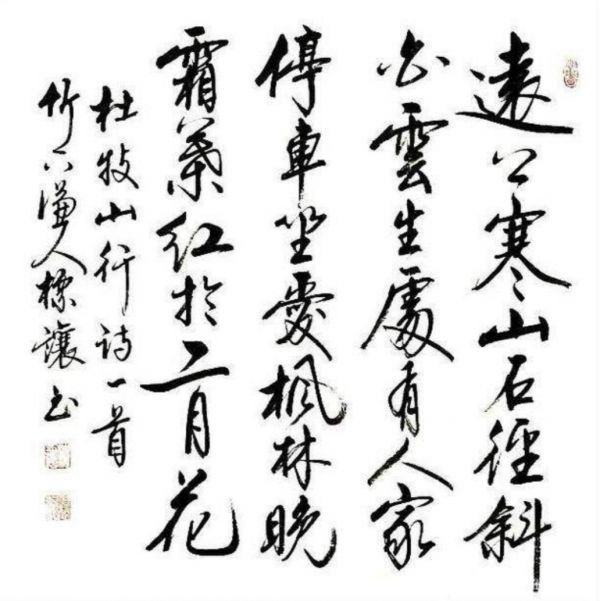 遠上寒山石徑斜
白雲生處有人家
停車坐愛楓林晚
霜葉紅於二月花
杜牧山行詩一首
竹下謙人讓書